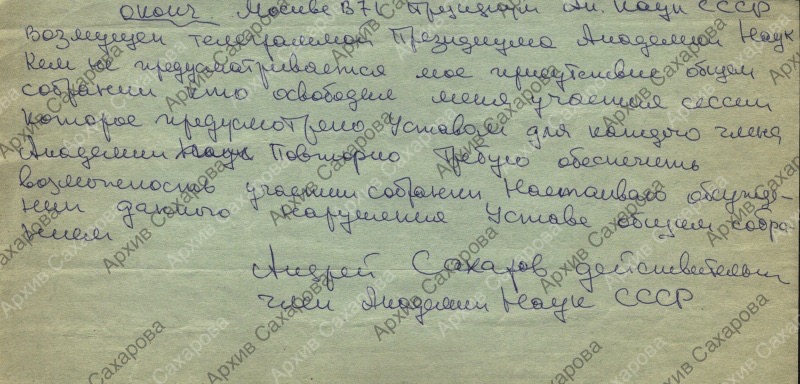 Москве В71 Президиум Ак. Наук СССР
Возмущен телеграммой Президиума Академии Наук
Кем не предусматривается мое присутствие общем
собрании Кто освободил меня участия сессии
которое предусмотрено Уставом для каждого члена
Академии Наук Повторно Требую обеспечить
возможность участия собрании Настаиваю обсужде-
нии данного нарушения Устава общим собра-
нием
Андрей Сахаров действительн
член Академии Наук СССР
Архив Сахарова